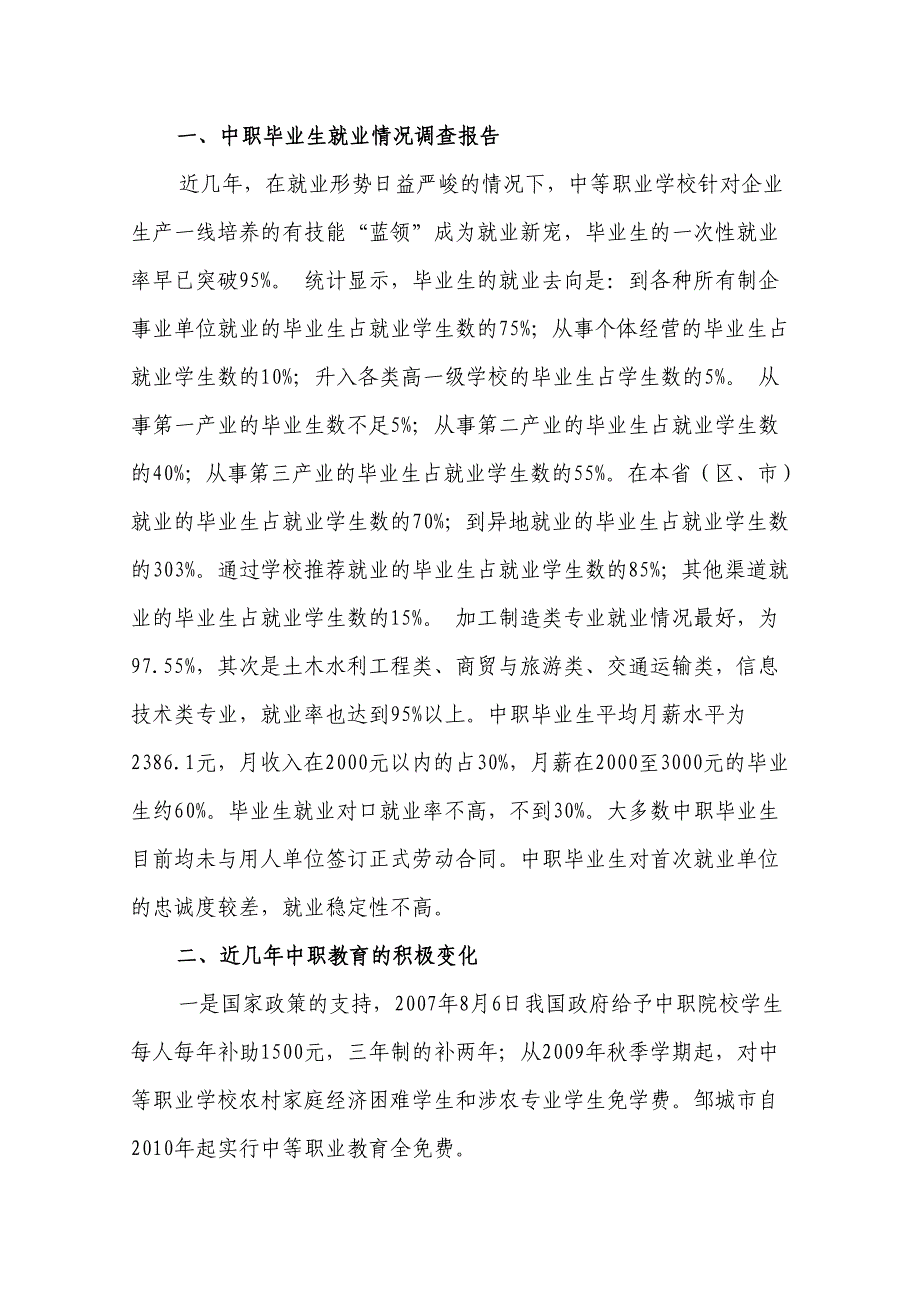 一、中职毕业生就业情况调查报告
近几年，在就业形势日益严峻的情况下，中等职业学校针对企业
生产一线培养的有技能“蓝领”成为就业新宠，毕业生的一次性就业
率早已突破95%。 统计显示，毕业生的就业去向是：到各种所有制企
事业单位就业的毕业生占就业学生数的75%；从事个体经营的毕业生占
就业学生数的10%；升入各类高一级学校的毕业生占学生数的5%。 从
事第一产业的毕业生数不足5%；从事第二产业的毕业生占就业学生数
的40%；从事第三产业的毕业生占就业学生数的55%。在本省（区、市）
就业的毕业生占就业学生数的70%；到异地就业的毕业生占就业学生数
的303%。通过学校推荐就业的毕业生占就业学生数的85%；其他渠道就
业的毕业生占就业学生数的15%。 加工制造类专业就业情况最好，为
97.55%，其次是土木水利工程类、商贸与旅游类、交通运输类，信息
技术类专业，就业率也达到95%以上。中职毕业生平均月薪水平为
2386.1元，月收入在2000元以内的占30%，月薪在2000至3000元的毕业
生约60%。毕业生就业对口就业率不高，不到30%。大多数中职毕业生
目前均未与用人单位签订正式劳动合同。中职毕业生对首次就业单位
的忠诚度较差，就业稳定性不高。
二、近几年中职教育的积极变化
一是国家政策的支持，2007年8月6日我国政府给予中职院校学生
每人每年补助1500元，三年制的补两年；从2009年秋季学期起，对中
等职业学校农村家庭经济困难学生和涉农专业学生免学费。邹城市自
2010年起实行中等职业教育全免费。